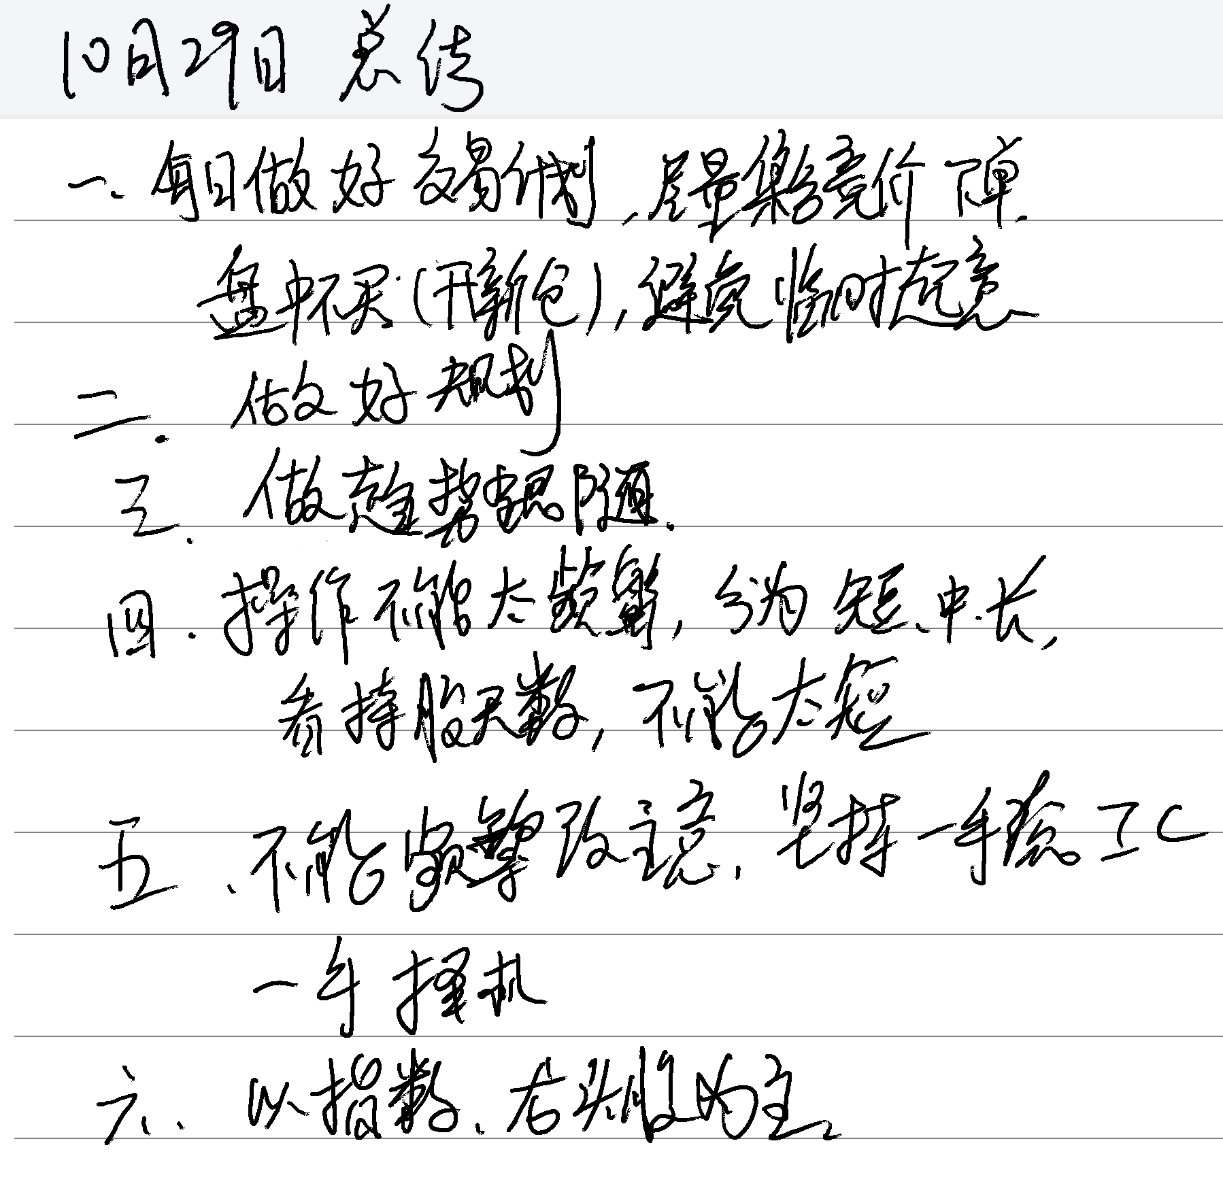 10月29日 总结
一、每日做好交易计划,尽量集合竞价下单.
盘中不买(开新仓),避免临时起意
二. 做好规划
三. 做趋势跟随.
四. 操作不能太频繁,分为短、中、长,
看持股天数,不能太短
五、不能频繁改主意,坚持一手 工C
一手择机
六、以指数、右头股为主